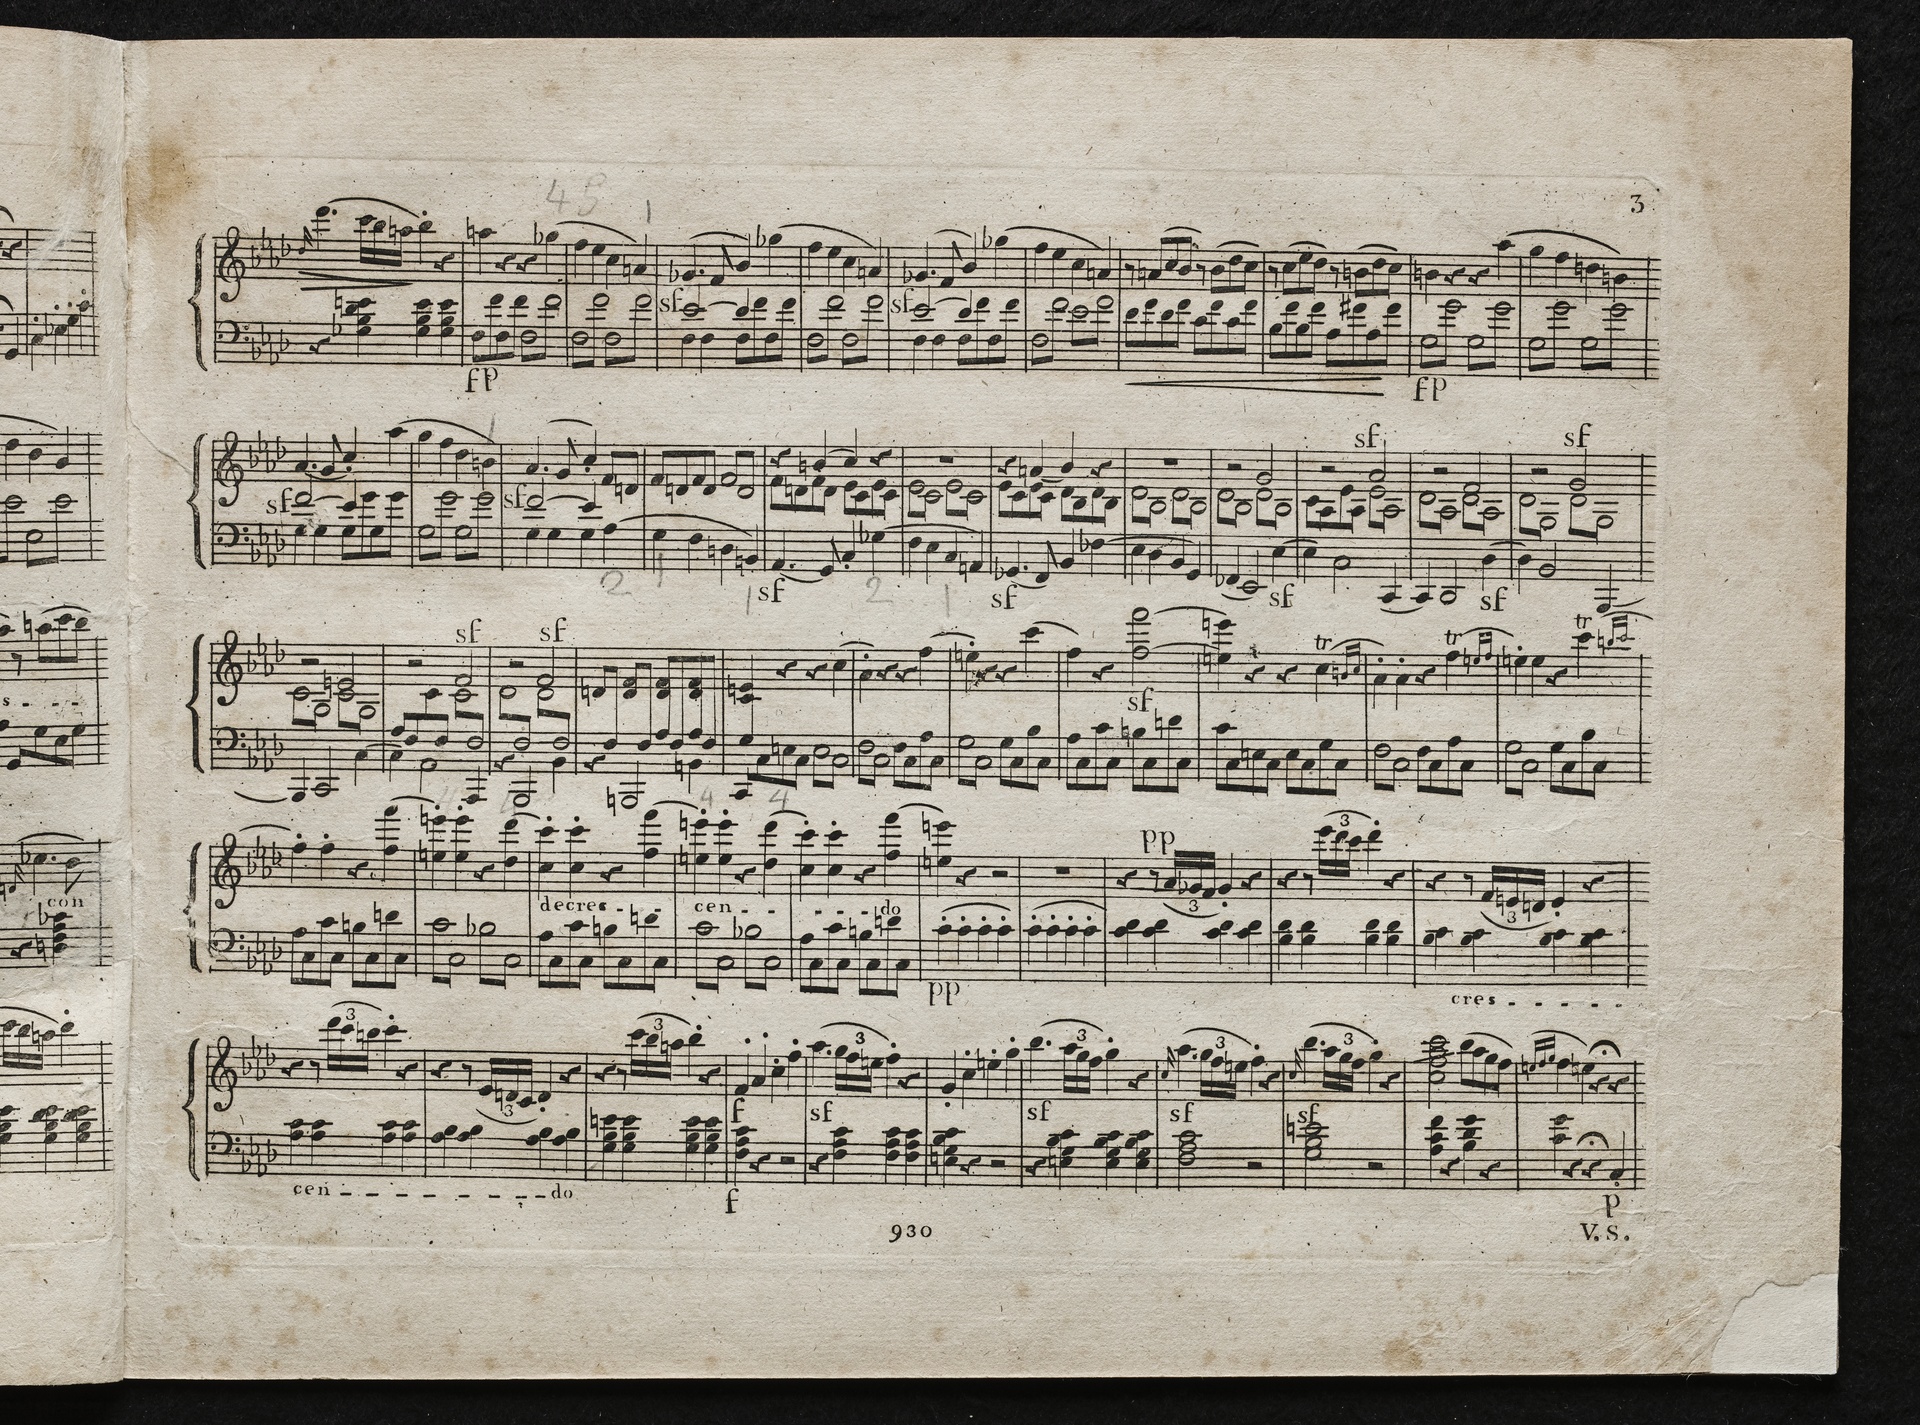 3
4 5 1
sf sf
fp fp
sf sf
sf sf
1
2 1 1 2 1
sf sf sf sf
sf sf
tr tr tr
s - - -
sf
4 4
pp
con
decres - - cen - - - - - do
pp
cres - - - - - -
3 3 3
3 3 3 3 3 3 3 3
f sf sf sf sf
cen - - - - - - - - do
f
p
930
V.S.